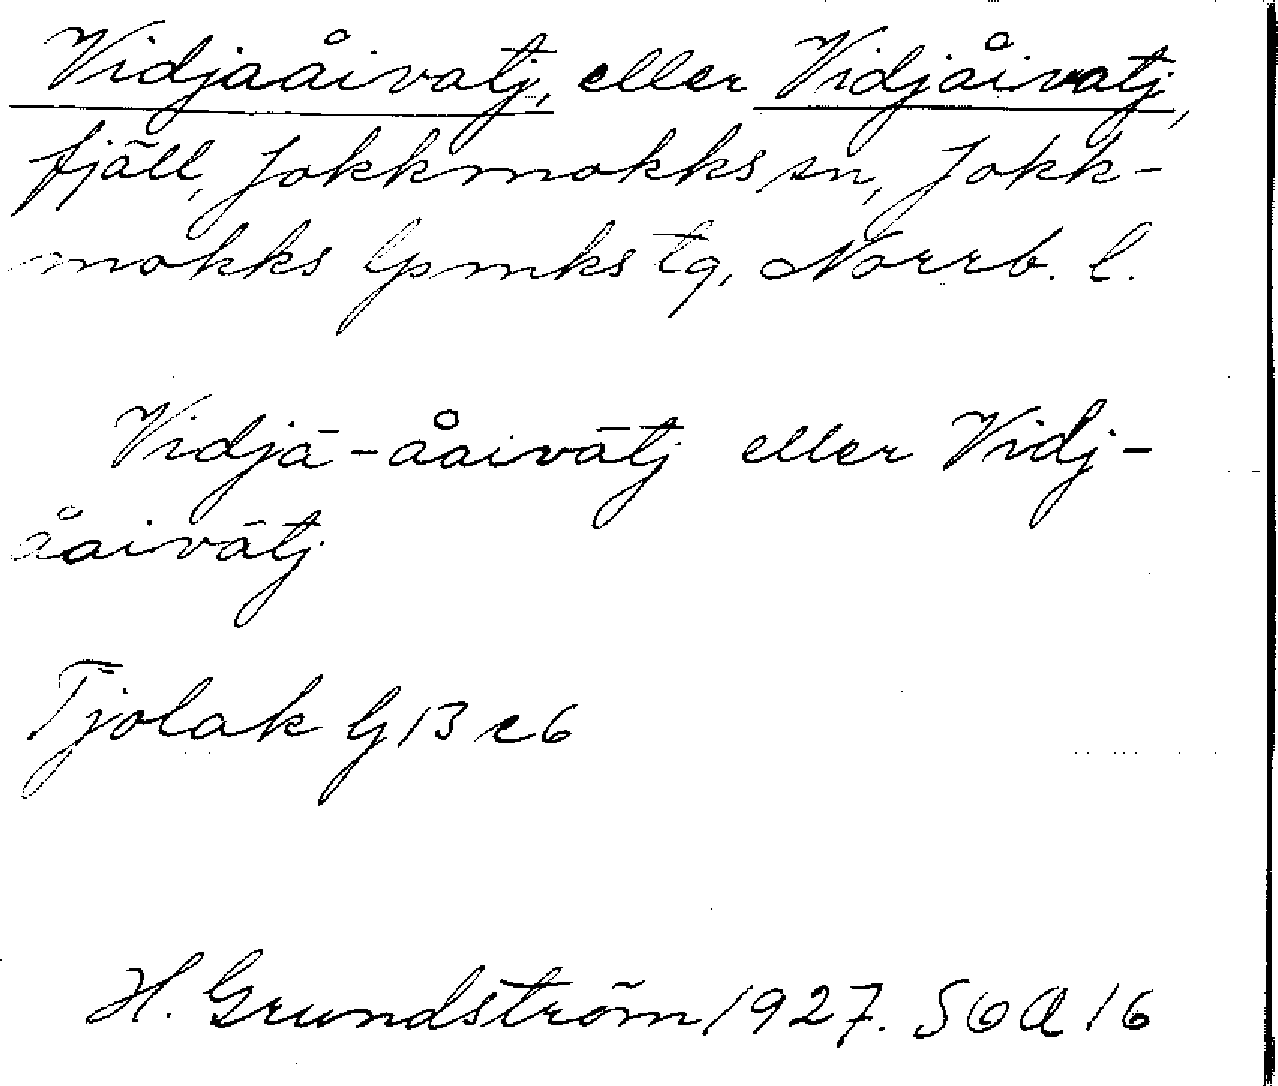 Vidjaåivatj, eller Vidjåivatj,
fjäll, Jokkmokks sn, Jokk-
mokks lpmks tg, Norrb. l.
Vidjā-åaivātj eller Vidj-
åaivātj
Tjolak G 13 c6
H. Grundström 1927. SOA 16